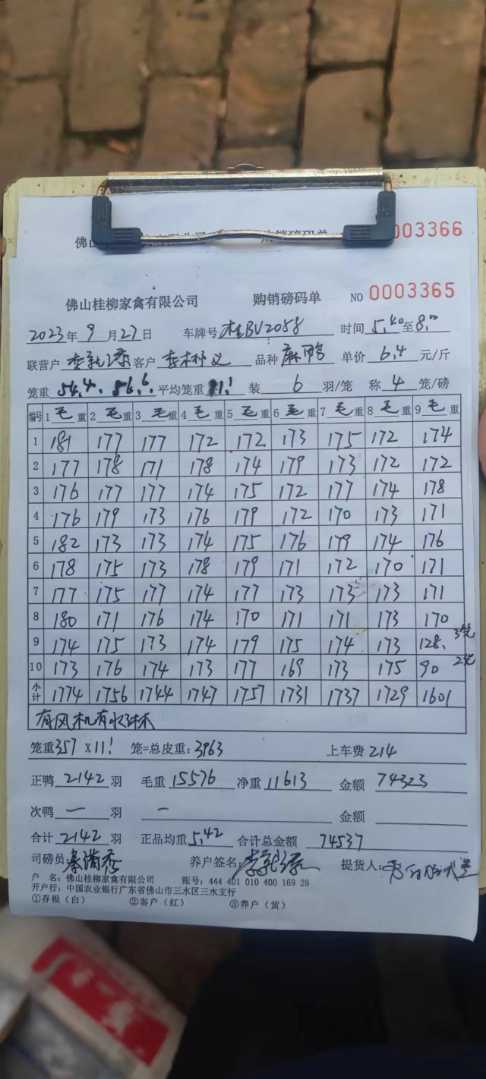 0003366
佛山桂柳家禽有限公司 购销磅码单 NO 0003365
2023年9月27日 车牌号 桂BV2058 时间 5.40至8.
联营户 客户 品种 麻鸭 单价 6.4 元/斤
笼重 54.4. 56.6. 平均笼重 11.1 装 6 羽/笼 称 4 笼/磅
编号 1毛重 2毛重 3毛重 4毛重 5毛重 6毛重 7毛重 8毛重 9毛重
1 181 177 177 172 172 173 175 172 174
2 177 178 171 178 174 179 173 172 172
3 176 177 177 174 175 172 177 174 178
4 176 179 173 176 179 172 170 173 171
5 182 173 173 174 175 176 179 174 176
6 178 175 173 178 179 171 172 170 171
7 177 175 177 174 177 173 173 173 171
8 180 171 176 174 170 171 171 173 170
9 174 175 173 174 179 175 174 173 128. 3笼
10 173 176 174 173 177 169 173 175 90 2笼
小计 1774 1756 1744 1747 1757 1731 1737 1729 1601
有风机有水林
笼重357 X 11.1 笼=总皮重: 3963 上车费 214
正鸭 2142 羽 毛重 15576 净重 11613 金额 74323
次鸭 一 羽 一 金额
合计 2142 羽 正品均重 5.42 合计总金额 74537
司磅员: 养户签名: 提货人:
户 名: 佛山桂柳家禽有限公司 账号: 444 401 010 400 169 28
开户行: 中国农业银行广东省佛山市三水区三水支行
①存根(白) ②客户(红) ③养户(黄)